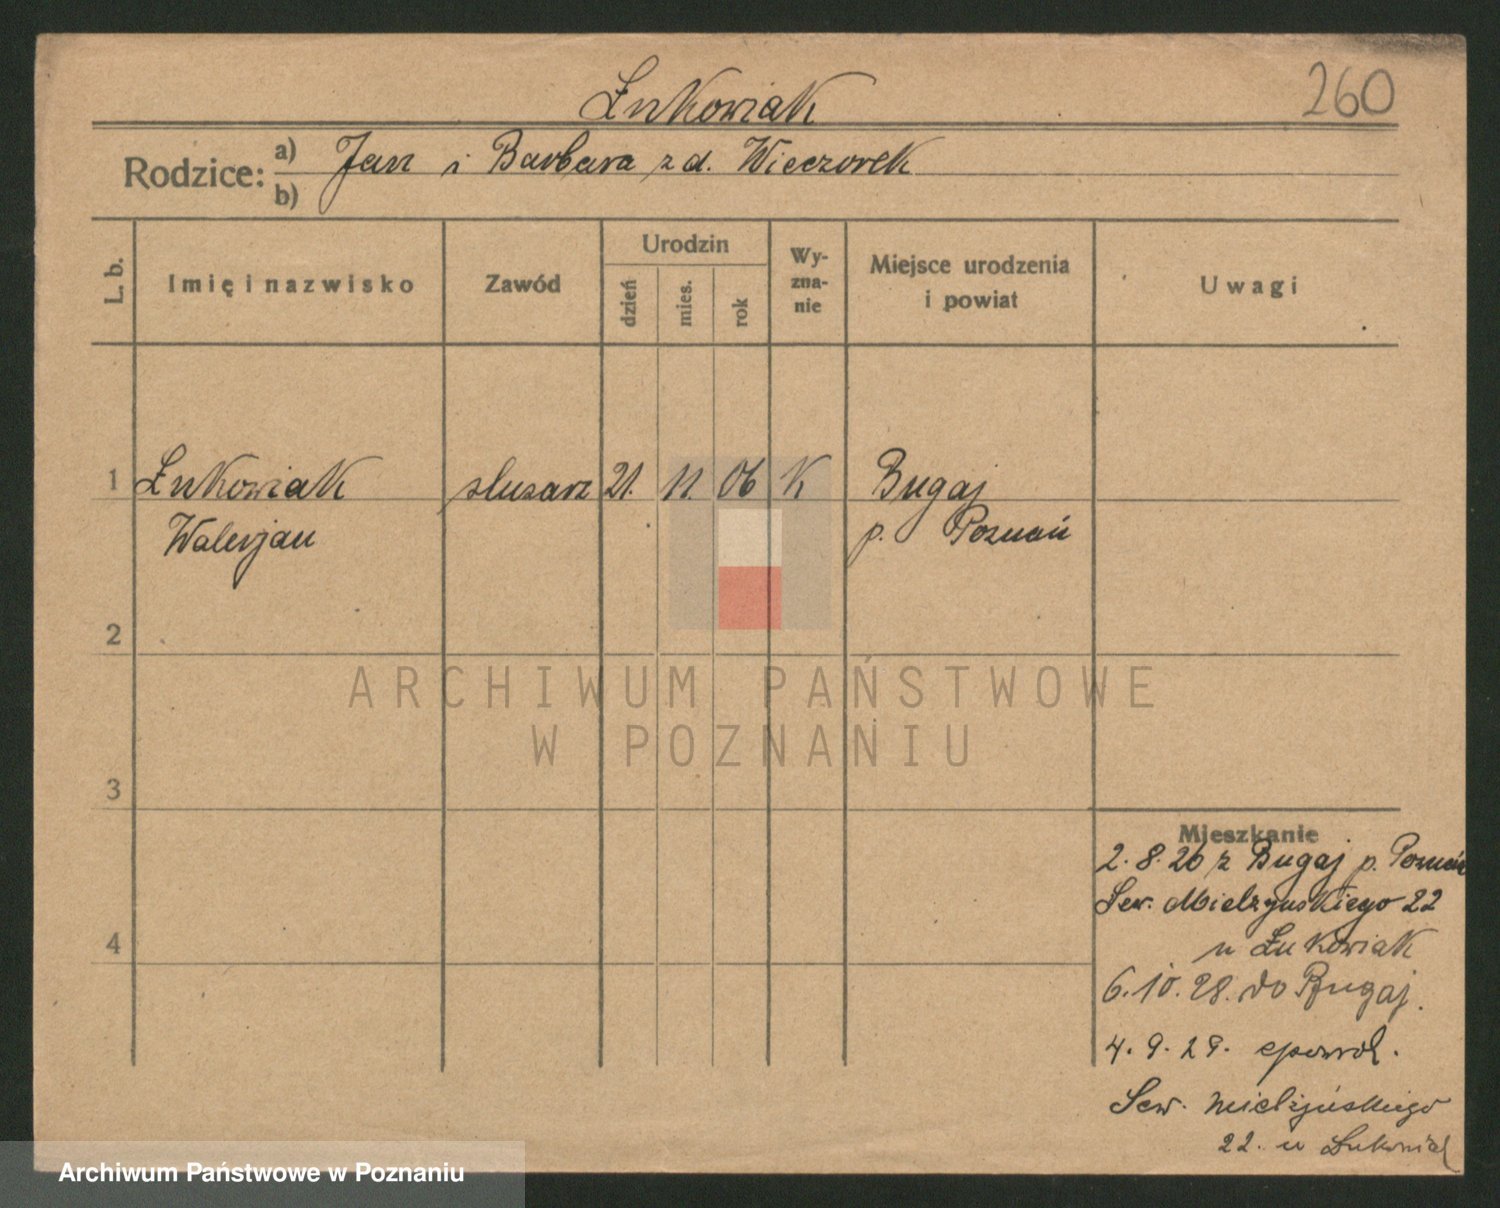 260
Łukowiak
Rodzice: a) Jan i Barbara z d. Wieczorek
b)
L. b. Imię i nazwisko Zawód Urodzin dzień mies. rok Wy-zna-nie Miejsce urodzenia i powiat Uwagi
1 Łukowiak ślusarz 21. 11. 06 K Bugaj
Walerjan p. Poznań
2
ARCHIWUM PAŃSTWOWE
W POZNANIU
3
Mieszkanie
2.8.26 z Bugaj p. Poznań
Sew. Mielżyńskiego 22
u Łukowiak
4
6.10.28. do Bugaj.
4.9.29. spowrot.
Sew. Mielżyńskiego
22. u Łukowiak
Archiwum Państwowe w Poznaniu